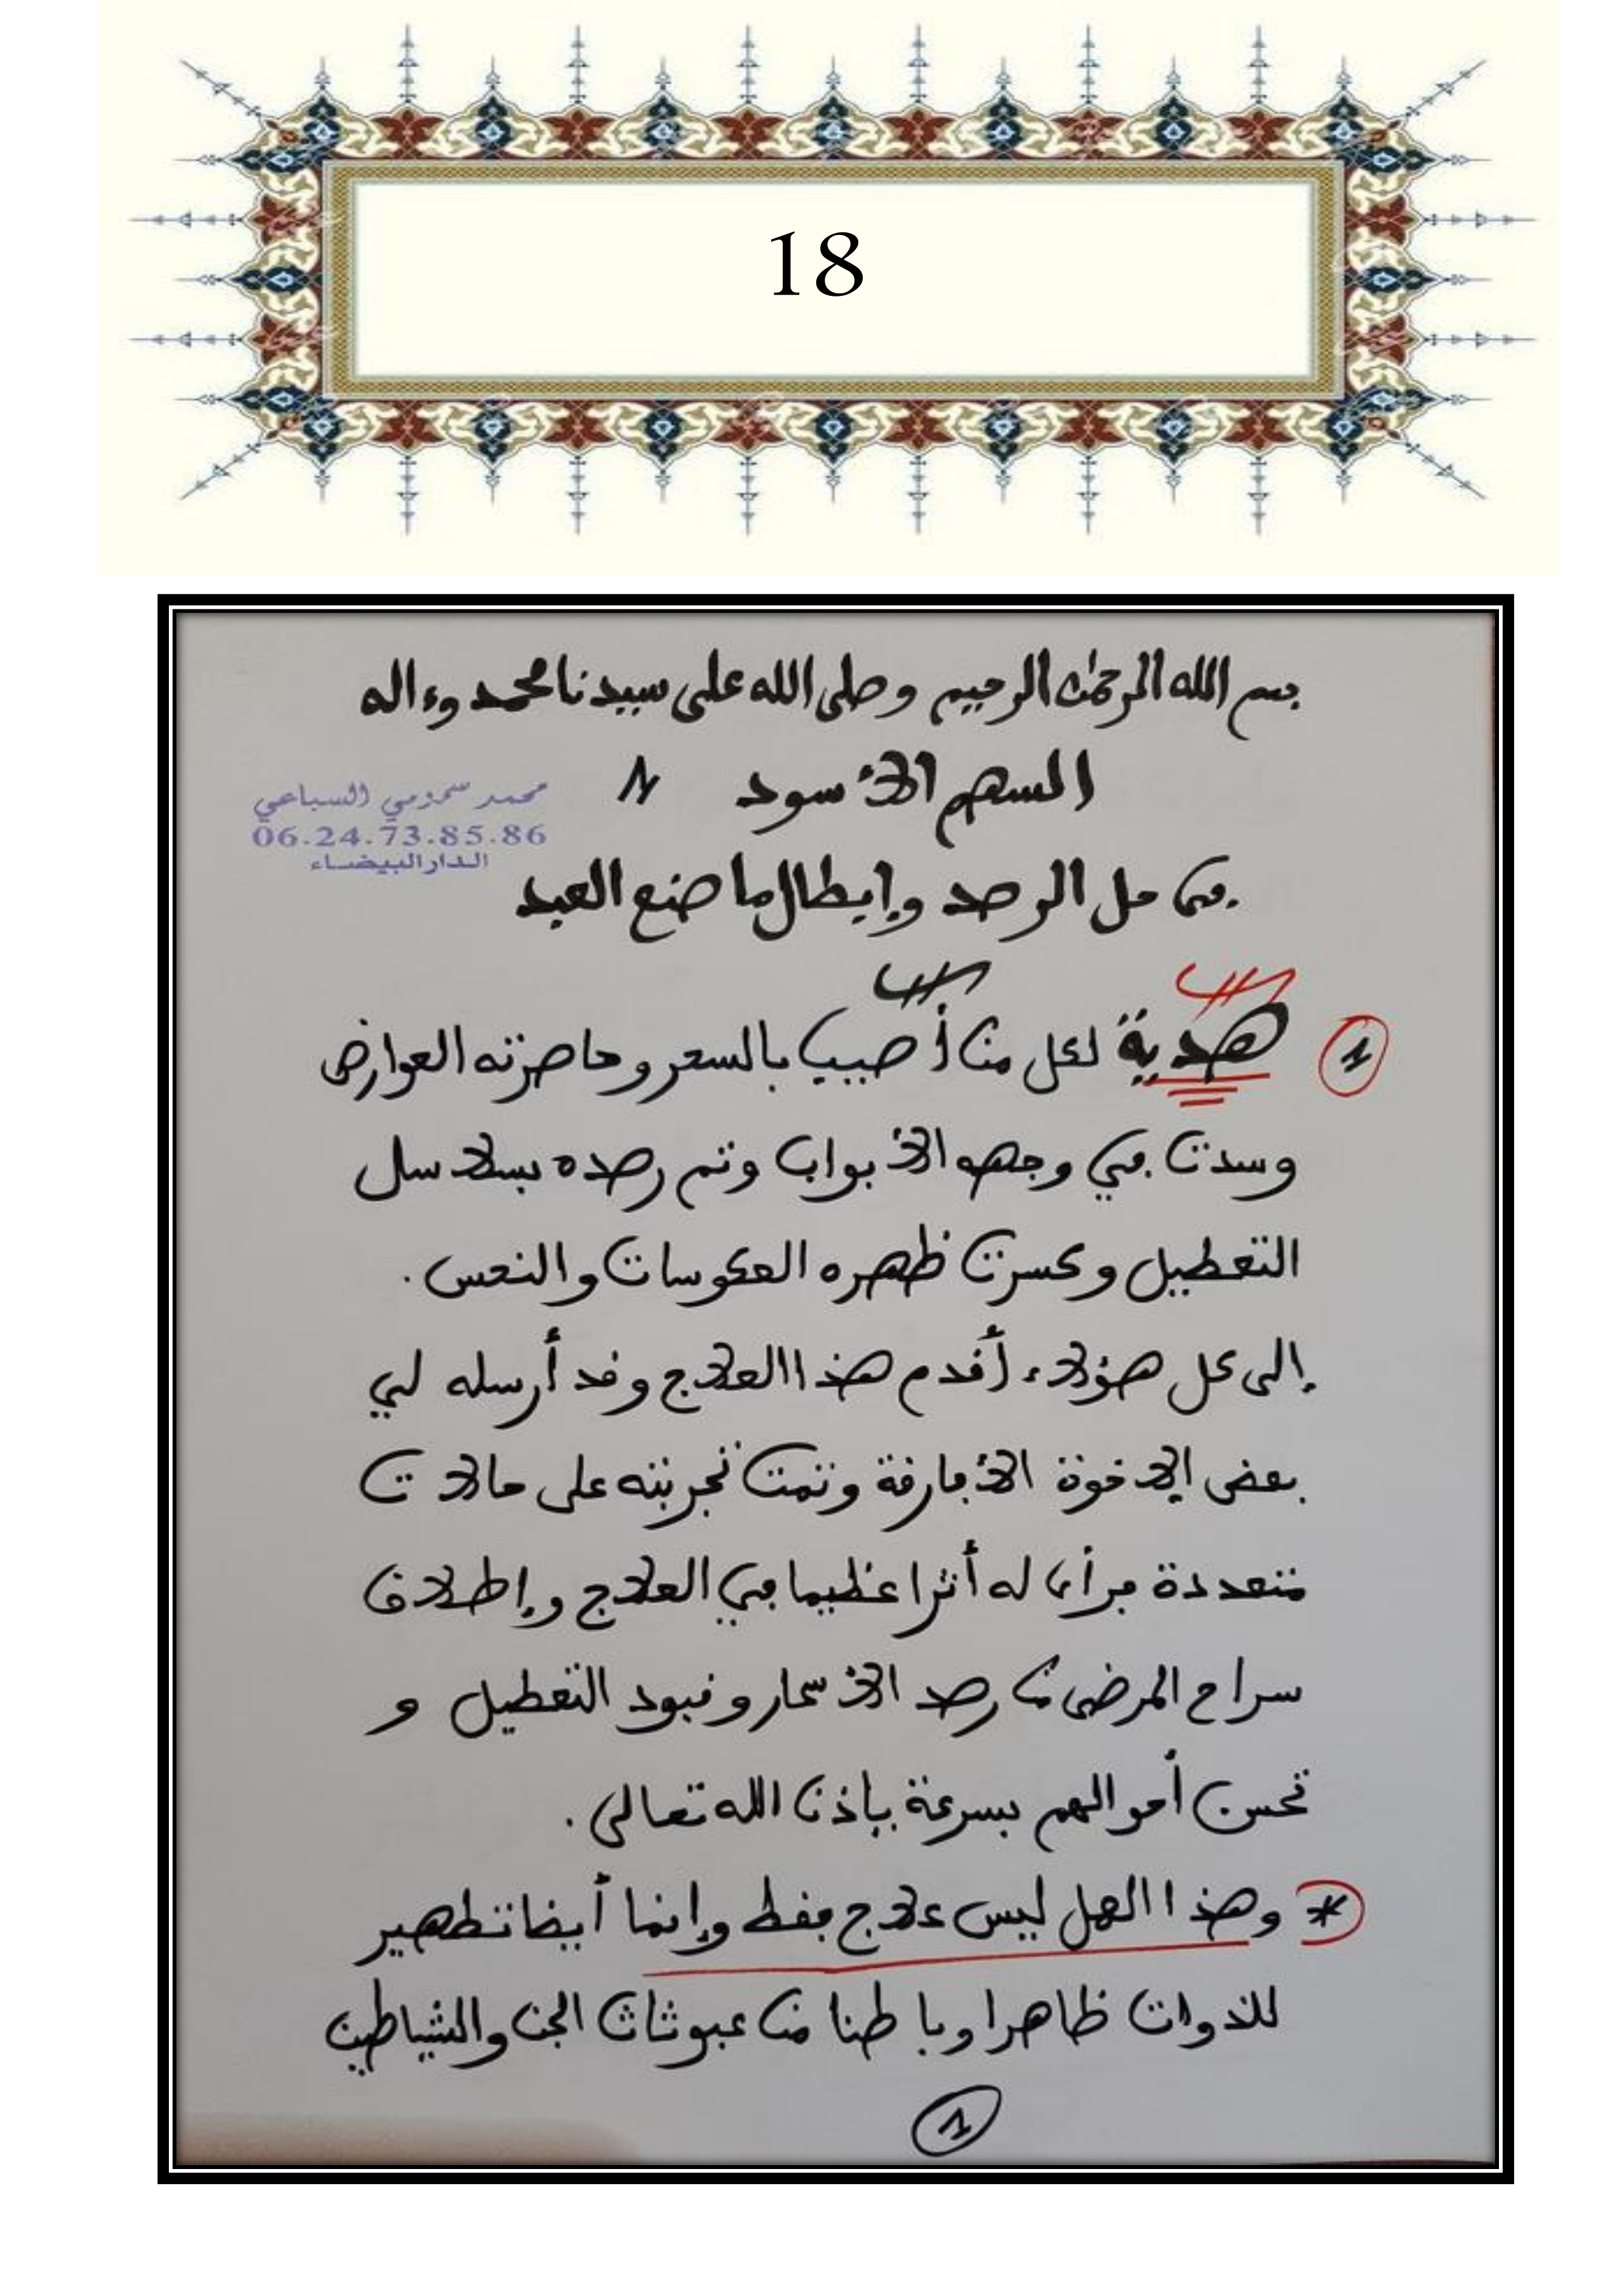 18
بسم الله الرحمٰن الرحيم وصلى الله على سيدنا محمد وءاله
السهم الأسود
محمد سمومي السباعي
06.24.73.85.86
الدار البيضاء
في حل الرصد وإبطال ما صنع العبد
1 هدية لكل من أصيب بالسحر وحاصرته العوارض
وسدت في وجهه الأبواب وتم رصده بسلاسل
التعطيل وكسرت ظهره العكوسات والنحس.
إلى كل هؤلاء أقدم هذا العلاج وقد أرسله لي
بعض الإخوة الأفارقة وتمت تجربته على حالات
متعددة فرأى له أثرا عظيما في العلاج وإطلاق
سراح المرضى من رصد الأسحار وقيود التعطيل و
تحسن أحوالهم بسرعة بإذن الله تعالى.
* وهذا العمل ليس علاج فقط وإنما أيضا تطهير
للذوات ظاهرا وباطنا من عبوثات الجن والشياطين
1